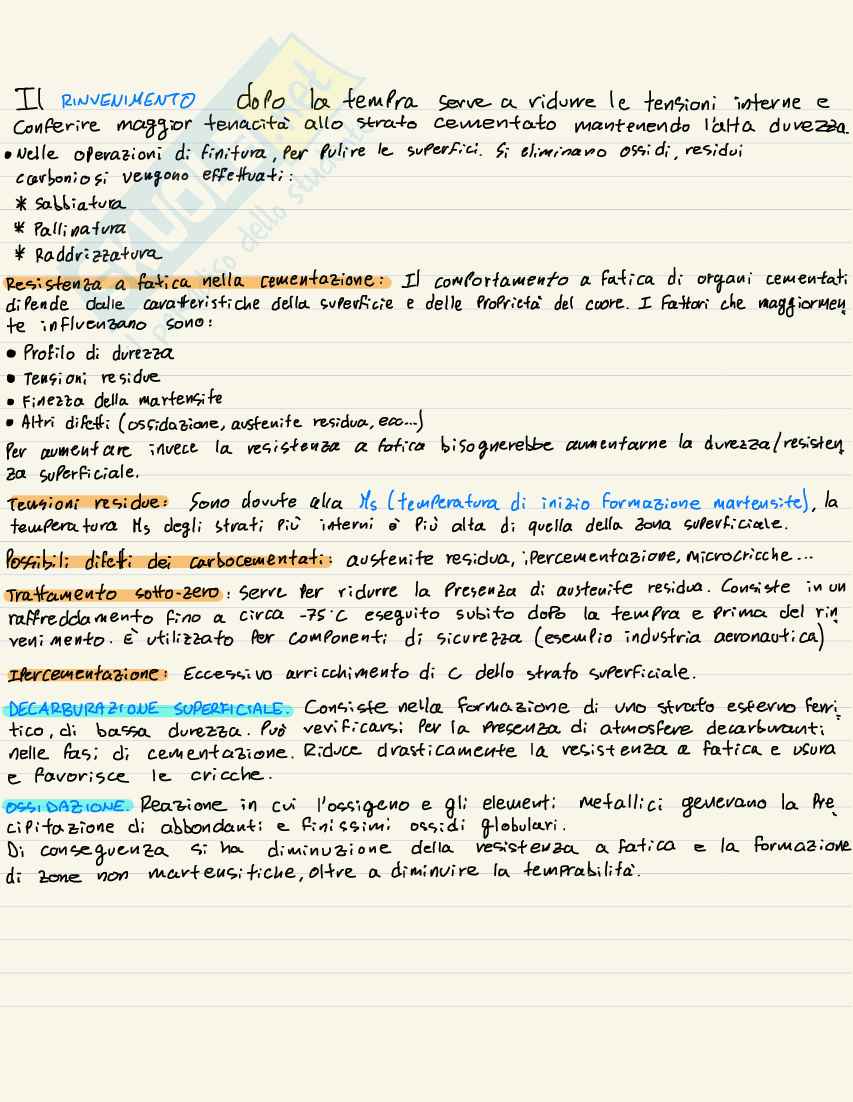 Il RINVENIMENTO dopo la tempra serve a ridurre le tensioni interne e
conferire maggior tenacità allo strato cementato mantenendo l'alta durezza.
• Nelle operazioni di finitura, per pulire le superfici. Si eliminano ossidi, residui
carboniosi vengono effettuati:
* Sabbiatura
* Pallinatura
* Raddrizzatura
Resistenza a fatica nella cementazione: Il comportamento a fatica di organi cementati
dipende dalle caratteristiche della superficie e delle proprietà del cuore. I fattori che maggiormen
te influenzano sono:
• Profilo di durezza
• Tensioni residue
• Finezza della martensite
• Altri difetti (ossidazione, austenite residua, ecc...)
Per aumentare invece la resistenza a fatica bisognerebbe aumentarne la durezza/resisten
za superficiale.
Tensioni residue: Sono dovute alla Ms (temperatura di inizio formazione martensite), la
temperatura Ms degli strati più interni è più alta di quella della zona superficiale.
Possibili difetti dei carbocementati: austenite residua, ipercementazione, microcricche...
Trattamento sotto-zero: Serve per ridurre la presenza di austenite residua. Consiste in un
raffreddamento fino a circa -75°C eseguito subito dopo la tempra e prima del rin
venimento. È utilizzato per componenti di sicurezza (esempio industria aeronautica)
Ipercementazione: Eccessivo arricchimento di C dello strato superficiale.
DECARBURAZIONE SUPERFICIALE. Consiste nella formazione di uno strato esterno ferri
tico, di bassa durezza. Può verificarsi per la presenza di atmosfere decarburanti
nelle fasi di cementazione. Riduce drasticamente la resistenza a fatica e usura
e favorisce le cricche.
OSSIDAZIONE. Reazione in cui l'ossigeno e gli elementi metallici generano la pre
cipitazione di abbondanti e finissimi ossidi globulari.
Di conseguenza si ha diminuzione della resistenza a fatica e la formazione
di zone non martensitiche, oltre a diminuire la temprabilità.